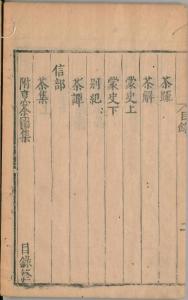 目錄
二
茶䟽
茶解
蒙史上
蒙史下
別紀
茶譚
信部
茶集
附烹茶圖集
目錄終